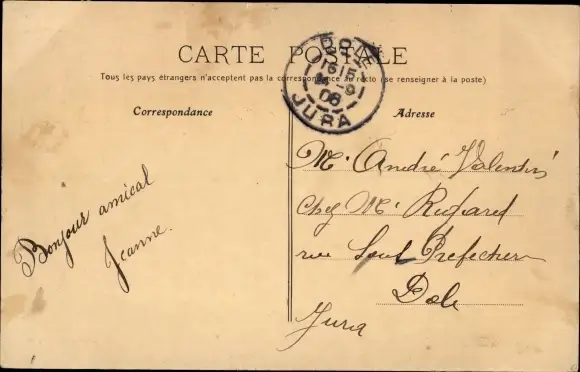 CARTE POSTALE
Tous les pays étrangers n'acceptent pas la correspondance au recto (se renseigner à la poste)
DOLE
JURA
Correspondance
Bonjour amical
Jeanne.
Adresse
Mr André Valentin
chez Mr Richard
rue Sous Prefecture
Dole
Jura